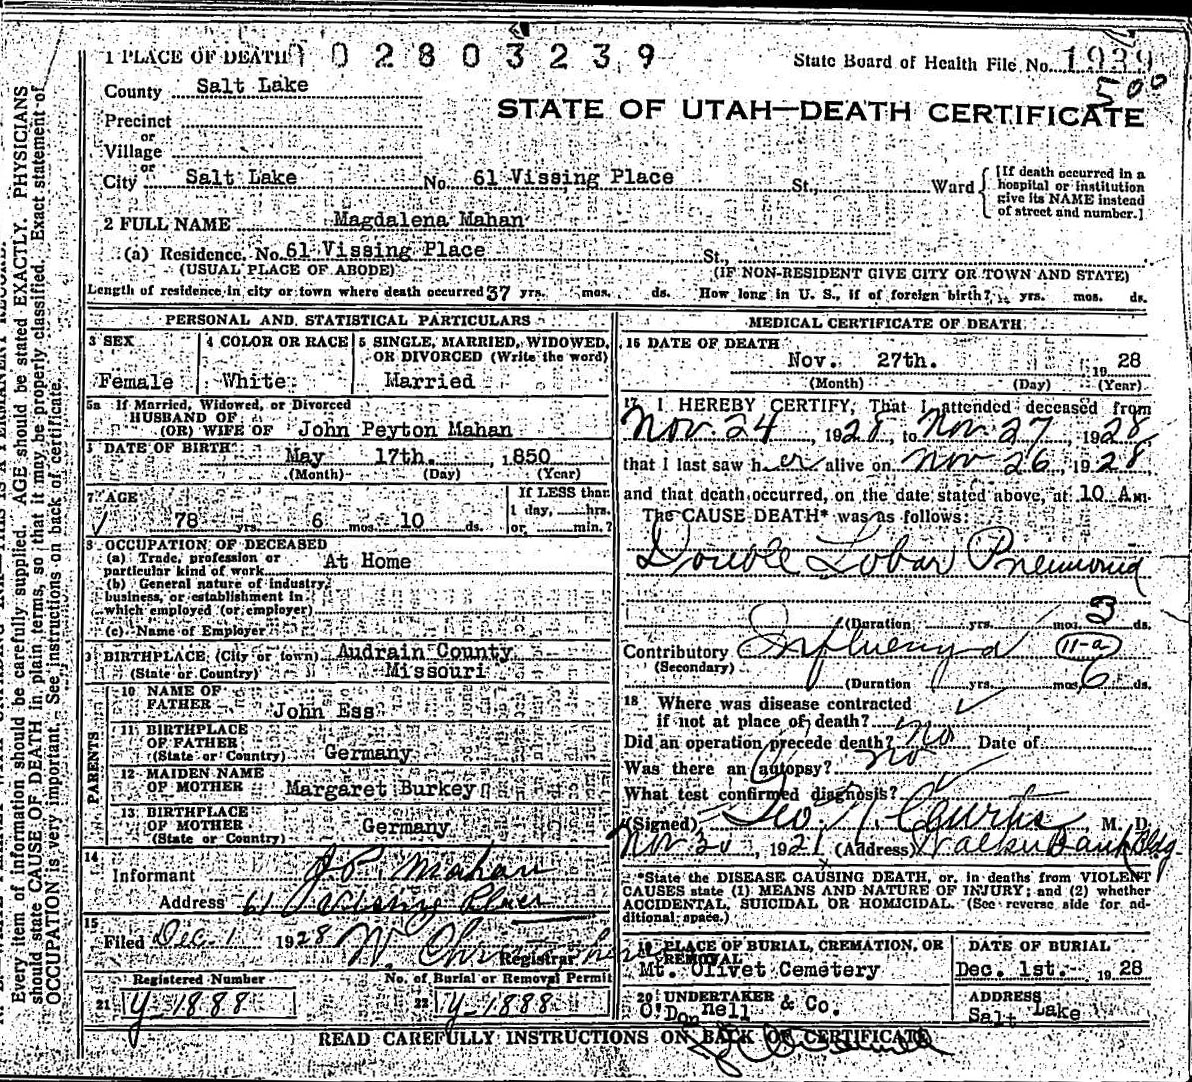 1 PLACE OF DEATH 02803239
State Board of Health File No. 1939
500
County Salt Lake
STATE OF UTAH—DEATH CERTIFICATE
Precinct
or
Village
or
City Salt Lake No. 61 Vissing Place St., Ward
[If death occurred in a
hospital or institution
give its NAME instead
of street and number.]
2 FULL NAME Magdalena Mahan
(a) Residence. No. 61 Vissing Place St.,
(USUAL PLACE OF ABODE) (IF NON-RESIDENT GIVE CITY OR TOWN AND STATE)
Length of residence in city or town where death occurred 37 yrs. mos. ds. How long in U. S., if of foreign birth? yrs. mos. ds.
PERSONAL AND STATISTICAL PARTICULARS
3 SEX
Female
4 COLOR OR RACE
White
5 SINGLE, MARRIED, WIDOWED,
OR DIVORCED (Write the word)
Married
5a If Married, Widowed, or Divorced
HUSBAND OF
(OR) WIFE OF John Peyton Mahan
DATE OF BIRTH May 17th. , 1850
(Month) (Day) (Year)
7 AGE
78 yrs. 6 mos. 10 ds.
If LESS than
1 day, hrs.
or min.?
8 OCCUPATION OF DECEASED
(a) Trade, profession or
particular kind of work At Home
(b) General nature of industry,
business, or establishment in
which employed (or employer)
(c) Name of Employer
9 BIRTHPLACE (City or town) Audrain County
(State or Country) Missouri
PARENTS
10 NAME OF
FATHER John Ess
11 BIRTHPLACE
OF FATHER
(State or Country) Germany
12 MAIDEN NAME
OF MOTHER Margaret Burkey
13 BIRTHPLACE
OF MOTHER Germany
(State or Country)
14
Informant J P. Mahan
Address 61 Vissing Place
15
Filed Dec. 1 1928
Registrar
Registered Number
21 Y-1888
No. of Burial or Removal Permit
22 Y-1888
MEDICAL CERTIFICATE OF DEATH
16 DATE OF DEATH
Nov. 27th. 19 28
(Month) (Day) (Year)
17 I HEREBY CERTIFY, That I attended deceased from
Nov. 24, 1928, to Nov. 27, 1928,
that I last saw her alive on Nov 26, 1928,
and that death occurred, on the date stated above, at 10 A m.
The CAUSE DEATH* was as follows:
Double Lobar Pneumonia
(Duration yrs. mos. 3 ds.
Contributory Influenza 11-a
(Secondary)
(Duration yrs. mos. 6 ds.
18 Where was disease contracted
if not at place of death?
Did an operation precede death? no Date of
Was there an autopsy? no
What test confirmed diagnosis?
(Signed) Geo. N. Curtis M. D.
Nov 30, 1928 (Address) Walker Bank Bldg
*State the DISEASE CAUSING DEATH, or, in deaths from VIOLENT
CAUSES state (1) MEANS AND NATURE OF INJURY; and (2) whether
ACCIDENTAL, SUICIDAL OR HOMICIDAL. (See reverse side for ad-
ditional space.)
19 PLACE OF BURIAL, CREMATION, OR
REMOVAL
Mt. Olivet Cemetery
DATE OF BURIAL
Dec. 1st. 19 28
20 UNDERTAKER
O'Donnell & Co.
ADDRESS
Salt Lake
READ CAREFULLY INSTRUCTIONS ON BACK OF CERTIFICATE
Every item of information should be carefully supplied. AGE should be stated EXACTLY. PHYSICIANS
should state CAUSE OF DEATH in plain terms, so that it may be properly classified. Exact statement of
OCCUPATION is very important. See instructions on back of certificate.